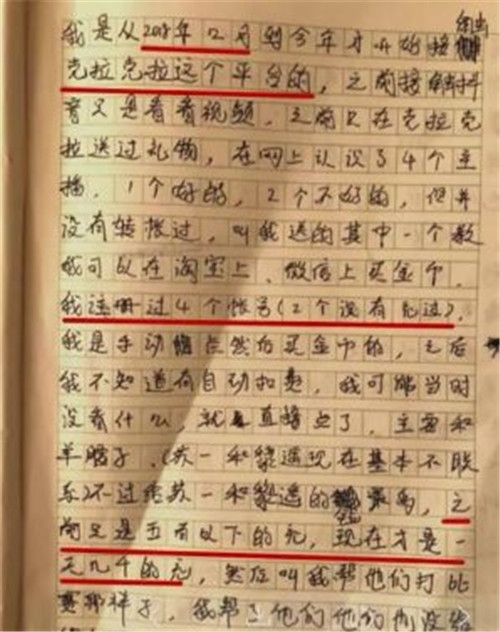 我是从2018年12月到今年才开始接触
克拉克拉这个平台的，之前接触抖
音只是看看视频，之前只在克拉克
拉送过礼物，在网上认识了4个主
播，1个好的，2个不好的，但并
没有转账过，叫我送的其中一个教
我可以在淘宝上、微信上买金币，
我注册过4个帐号(2个没有充过)，
我是手动点然后买金币的，之后
我不知道有自动扣费，我可能当时
没看什么，就直接点了，主要和
羊腰子、(苏一和黎遥现在基本不联
系)不过给苏一和黎遥的最多，之
前只是五百以下的充，现在才是一
天几千的充，然后叫我帮他们打pk
赛那样子，我帮了他们他们也没给